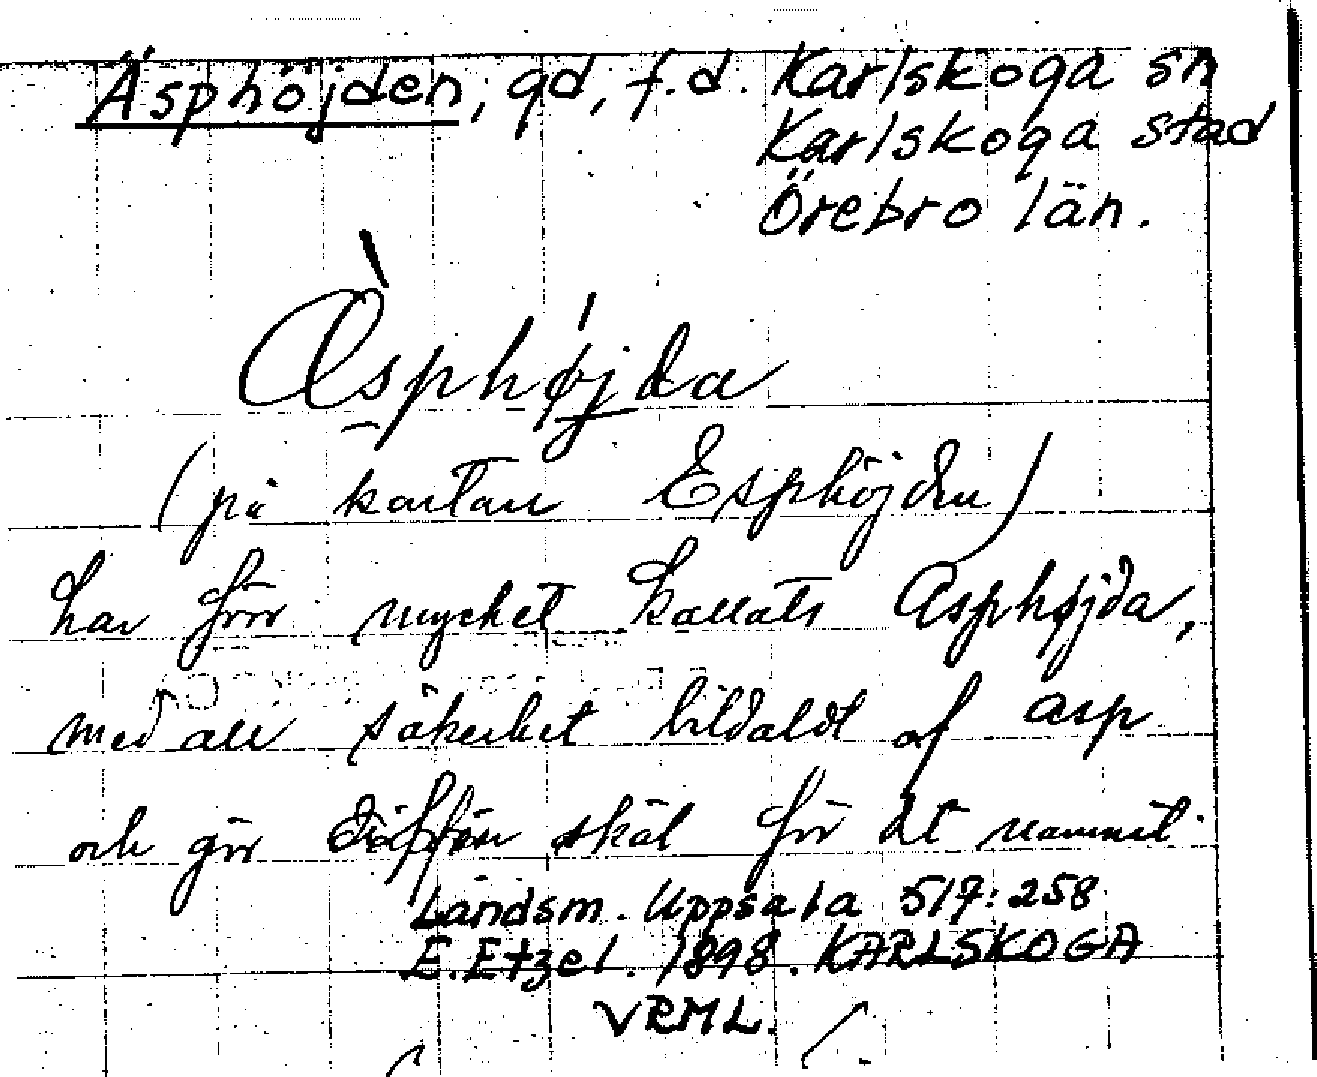 Äsphöjden, gd, f.d. Karlskoga sn
Karlskoga stad
Örebro län.
Æsphøjda
(på kartan Esphöjden)
har förr mycket kallats Asphøjda,
med all säkerhet bildadt af asp
och gör däfför skäl för det namnet.
Landsm. Uppsala 517:258
E. Etzel. 1898. KARLSKOGA
VRML.